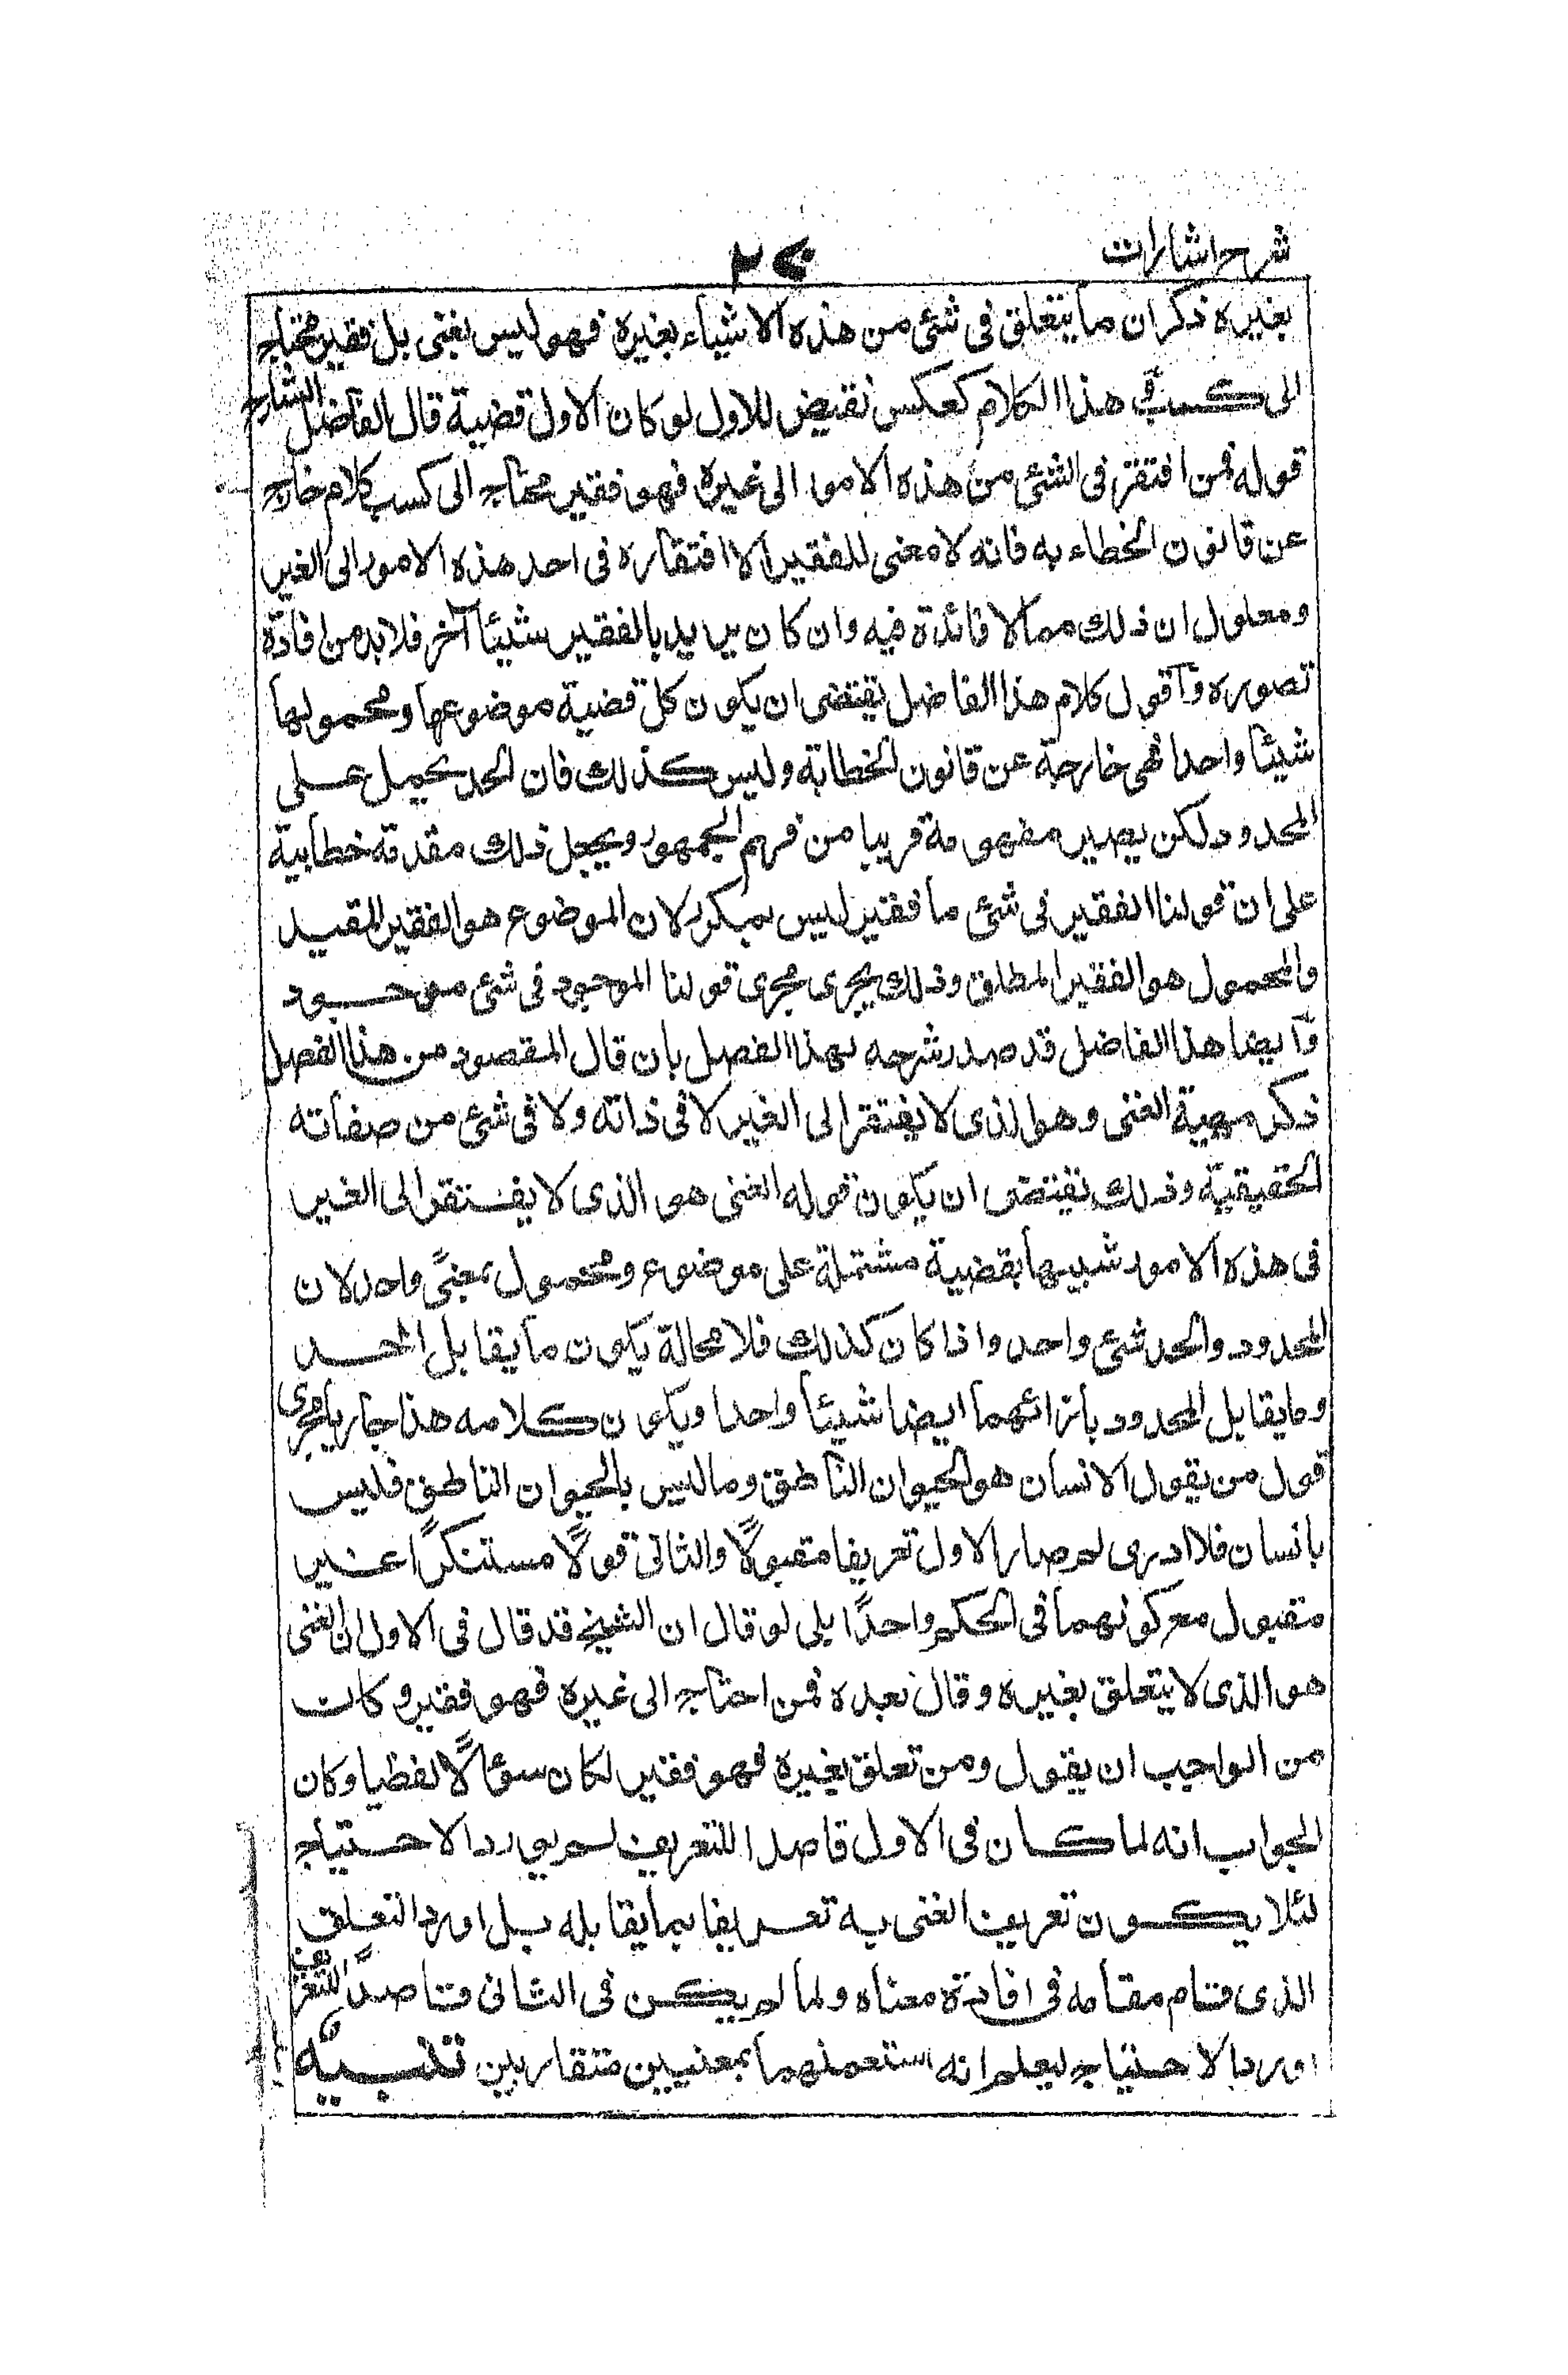 شرح اشارات
بغيره ذكر ان ما يتعلق فى شئ من هذه الاشياء بغيره فهو ليس بغنى بل فقير محتاج
الى كسب فى هذا الكلام كعكس نقيض للاول لو كان الاول قضية قال الفاضل الشارح
قوله فمن افتقر فى الشئ من هذه الامور الى غيره فهو فقير محتاج الى كسب كلام خارج
عن قانون الخطاء به فانه لا معنى للفقير الا افتقاره فى احد هذه الامور الى الغير
ومعلول ان ذلك مما لا فائدة فيه وان كان يريد بالفقير شيئاً آخر فلا بد من افادة
تصوره وآقول كلام هذا الفاضل يقتضى ان يكون كل قضية موضوعها ومحمولها
شيئاً واحدا فهى خارجة عن قانون الخطابة وليس كذلك فان الحد يحمل على
المحدود ليكن يصير مفهومة قريبا من فهم الجمهور ويجعل ذلك مقدمة خطابية
على ان قولنا الفقير فى شئ ما فقير ليس بمكرر لان الموضوع هو الفقير المقيد
والمحمول هو الفقير المطلق وذلك يجرى مجرى قولنا الموجود فى شئ موجود
وآيضا هذا الفاضل قد صدر شرحه لهذا الفصل بان قال المقصود من هذا الفصل
ذكر مهية الغنى وهو الذى لا يفتقر الى الغير لا فى ذاته ولا فى شئ من صفاته
الحقيقية وذلك يقتضى ان يكون قوله الغنى هو الذى لا يفتقر الى الغير
فى هذه الامور شبيها بقضية مشتملة على موضوع ومحمول بمعنًى واحد لان
المحدود والحد شئ واحد واذا كان كذلك فلا محالة يكون ما يقابل الحد
وما يقابل المحدود بازائهما ايضا شيئاً واحدا ويكون كلامه هذا جاريا مجرى
قول من يقول الانسان هو الحيوان الناطق وما ليس بالحيوان الناطق فليس
بانسان فلا ادرى لم صار الاول تعريفا مقبولًا والثانى قولًا مستنكرًا غير
مقبول مع كونهما فى الحكم واحدًا بلى لو قال ان الشيخ قد قال فى الاول ان الغنى
هو الذى لا يتعلق بغيره وقال بعده فمن احتاج الى غيره فهو فقير وكان
من الواجب ان يقول ومن تعلق بغيره فهو فقير لكان سؤالًا لفظيا وكان
الجواب انه لما كان فى الاول قاصدا للتعريف لم يورد الاحتياج
لئلا يكون تعريف الغنى به تعريفا بما يقابله بل اورد التعلق
الذى قام مقامه فى افادة معناه ولما لم يكن فى الثانى قاصدًا للتعريف
اورد الاحتياج ليعلم انه استعملهما بمعنيين متقاربين تنبيه